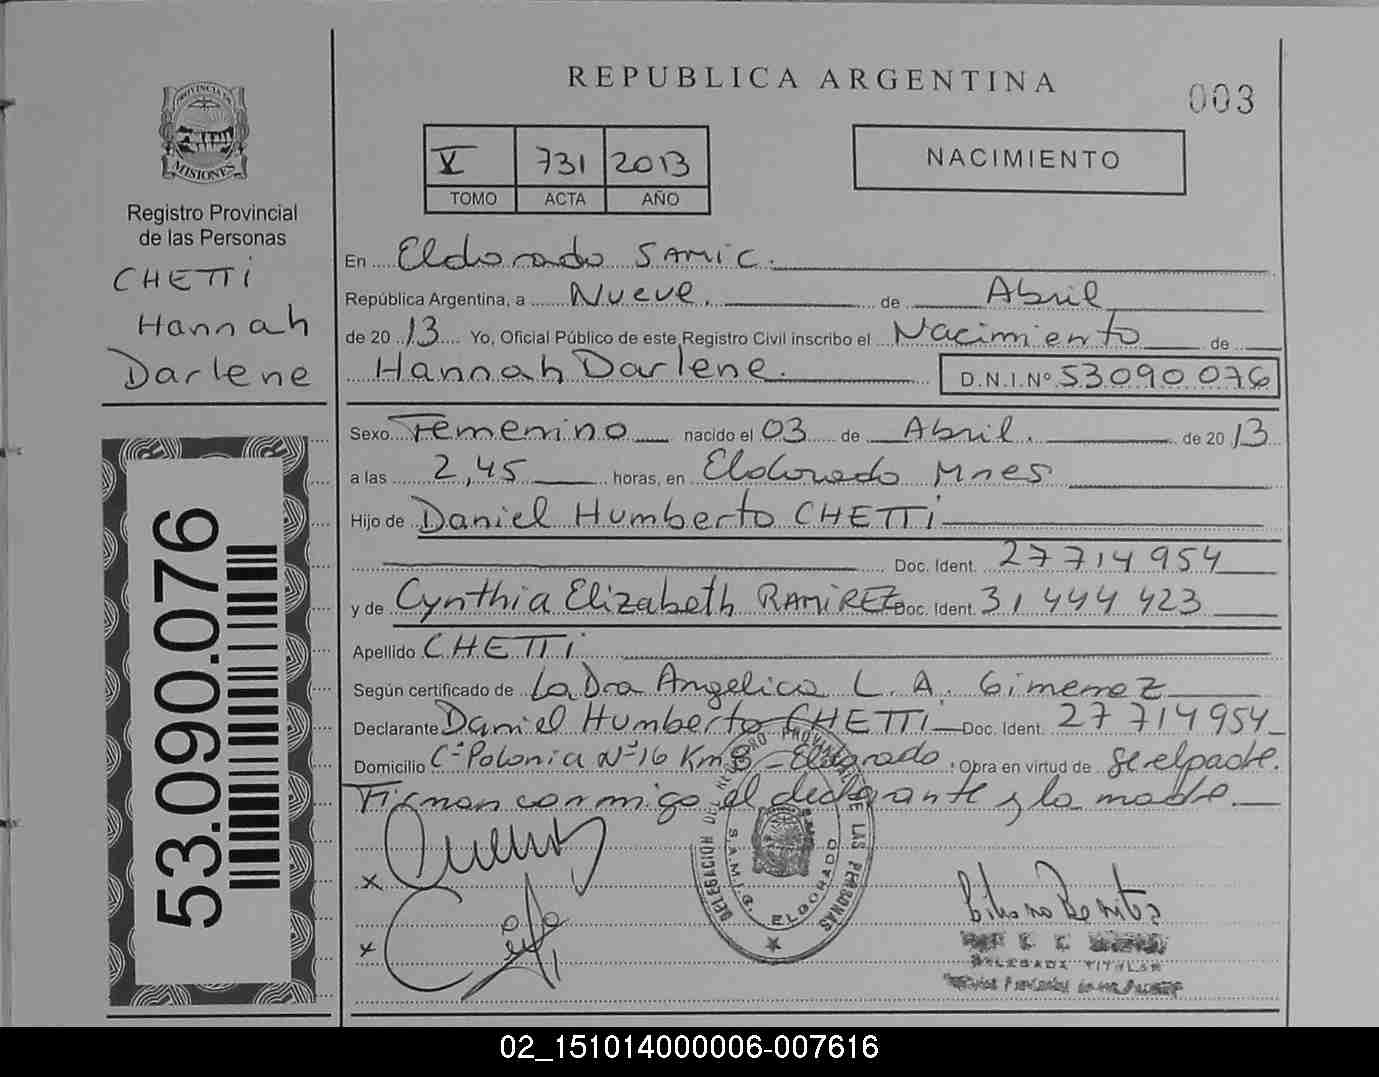 REPUBLICA ARGENTINA
003
PROVINCIA DE
MISIONES
Registro Provincial
de las Personas
CHETTI
Hannah
Darlene
53.090.076
V 731 2013
TOMO ACTA AÑO
NACIMIENTO
En Eldorado SAMIC.
República Argentina, a Nueve. de Abril
de 20 13 Yo, Oficial Público de este Registro Civil inscribo el Nacimiento de
Hannah Darlene. D.N.I.Nº 53090076
Sexo Femenino nacido el 03 de Abril. de 20 13
a las 2,45 horas, en Eldorado Mnes
Hijo de Daniel Humberto CHETTI
Doc. Ident. 27 714 954
y de Cynthia Elizabeth RAMIREZ Doc. Ident. 31 444 423
Apellido CHETTI
Según certificado de La Dra Angelica L. A. Gimenez
Declarante Daniel Humberto CHETTI Doc. Ident. 27 714 954
Domicilio Cº Polonia Nº 16 Km 8 - Eldorado. Obra en virtud de Ser el padre.
Firman conmigo el declarante y la madre.
DELEGACION DEL REGISTRO PROVINCIAL DE LAS PERSONAS
S.A.M.I.C.
ELDORADO
x
x
Benitez
DELEGADA TITULAR
02_151014000006-007616